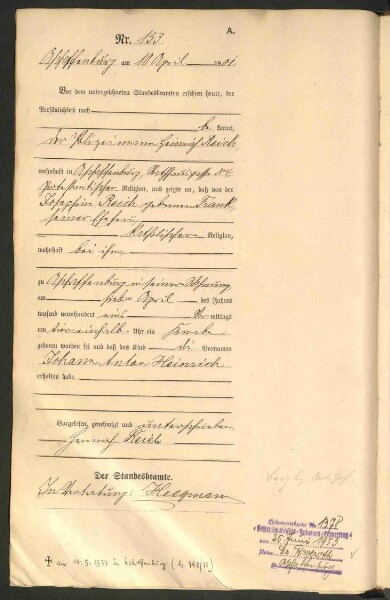 A.
Nr. 153
Aschaffenburg am 10 April 1901
Vor dem unterzeichneten Standesbeamten erschien heute, der
Persönlichkeit nach
be kannt,
der Polizeimann Heinrich Reich
wohnhaft in Aschaffenburg,
protestantischer Religion, und zeigte an, daß von der
Josephine Reich geborenen Frank
seiner Ehefrau
katholischer Religion,
wohnhaft bei ihm,
zu Aschaffenburg in seiner Wohnung
am April des Jahres
tausend neunhundert eins mittags
um Uhr ein Knabe
geboren worden sei und daß das Kind die Vornamen
Johann Anton Heinrich
erhalten habe.
Vorgelesen, genehmigt und unterschrieben
Heinrich Reich
Der Standesbeamte.
In Vertretung:
Nr. 1378
25. Juni
Aschaffenburg
✝ am 14.5.1977 in Aschaffenburg